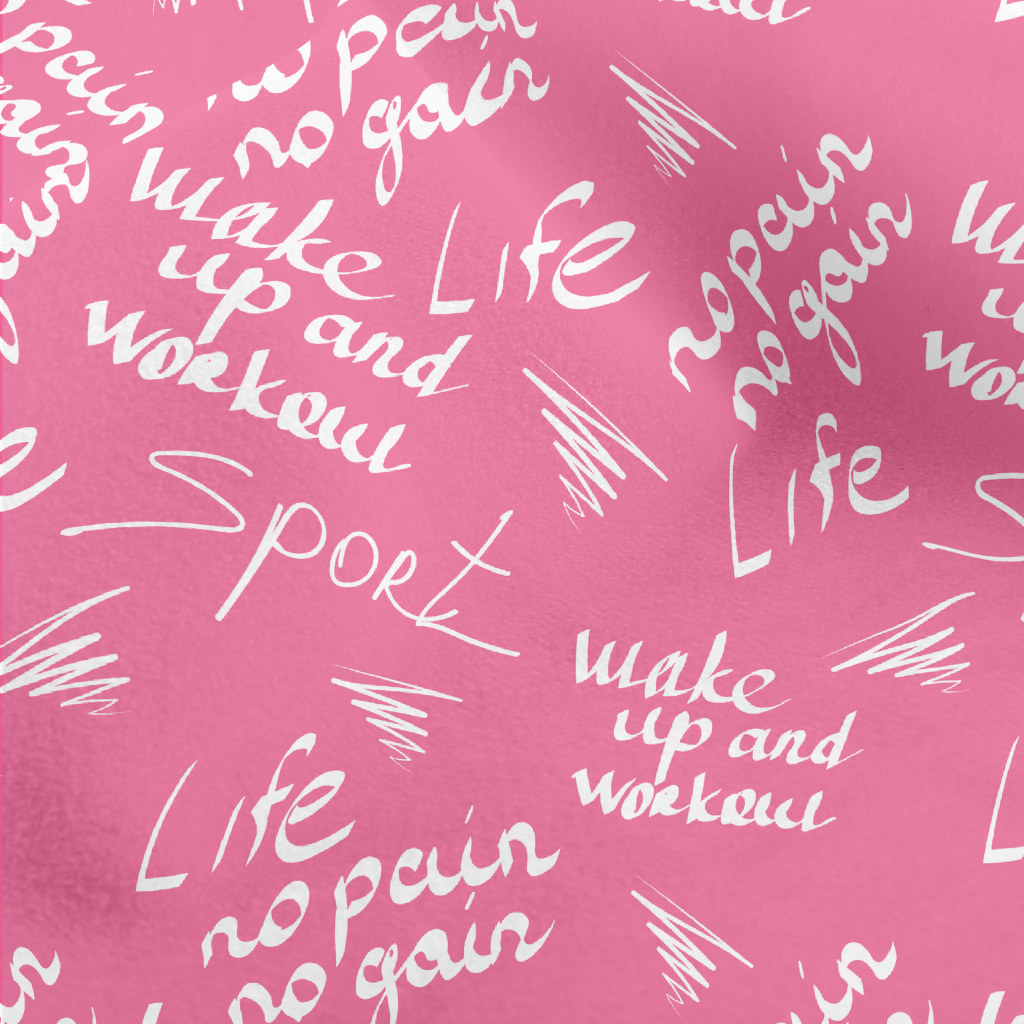 no pain
no gain
pain
wake
up and
workout
Life
no pain
no gain
Life
Sport
wake
up and
workout
Life
no pain
no gain